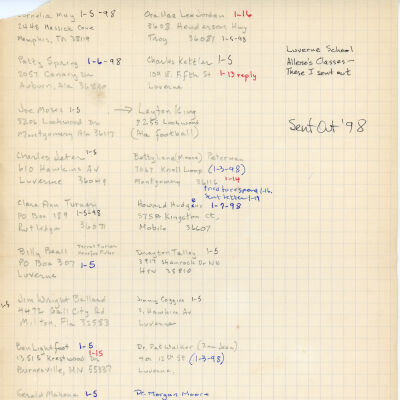 Cornelia Muy 1-5-98
2448 Messick Cove
Memphis, TN 38119
Patty Spring 1-6-98
2057 Canary Dr.
Auburn, Ala 36830
Joe Moses 1-5
3206 Lockwood Dr
Montgomery Ala 36117
Charles Jeter 1-5
610 Hawkins Av
Luverne 36049
Clara Ann Turner
PO Box 189 1-5-98
Rutledge 36071
Billy Beall
PO Box 307 1-5
Luverne
1-5 Jim Wright Ballard
4472 Bell City Rd
Milton, Fla 32583
Ben Lightfoot 1-5
1-15
13515 Krestwood Dr
Burnsville, MN 55337
Gerald Mahone 1-5
Ora Mae Lee Jordan 1-16
8608 Henderson Hwy
Troy 36081 1-5-98
Charles Kettler 1-5
109 E. Fifth St 1-13 reply
Luverne
→ Layton King
8255 Lockwood
(Ala football)
Betty Lane (Moore) Peterman
7067 Knoll Loop (1-3-98)
Montgomery 36116 1-14
tried to respond 1-16.
Sent letter 1-19
Howard Hudgens 1-7-98
5758 Kingston Ct,
Mobile 36607
Drayton Talley 1-5
3917 Shamrock Dr NW
HSV 35810
Jimmy Coggins 1-5
Hawkins Av
Luverne
Dr. Pat Walker (Jean)
401 12th St (1-3-98)
Luverne,
Dr. Morgan Moore
Luverne School
Allene's Classes—
These I sent out
Sent Out '98